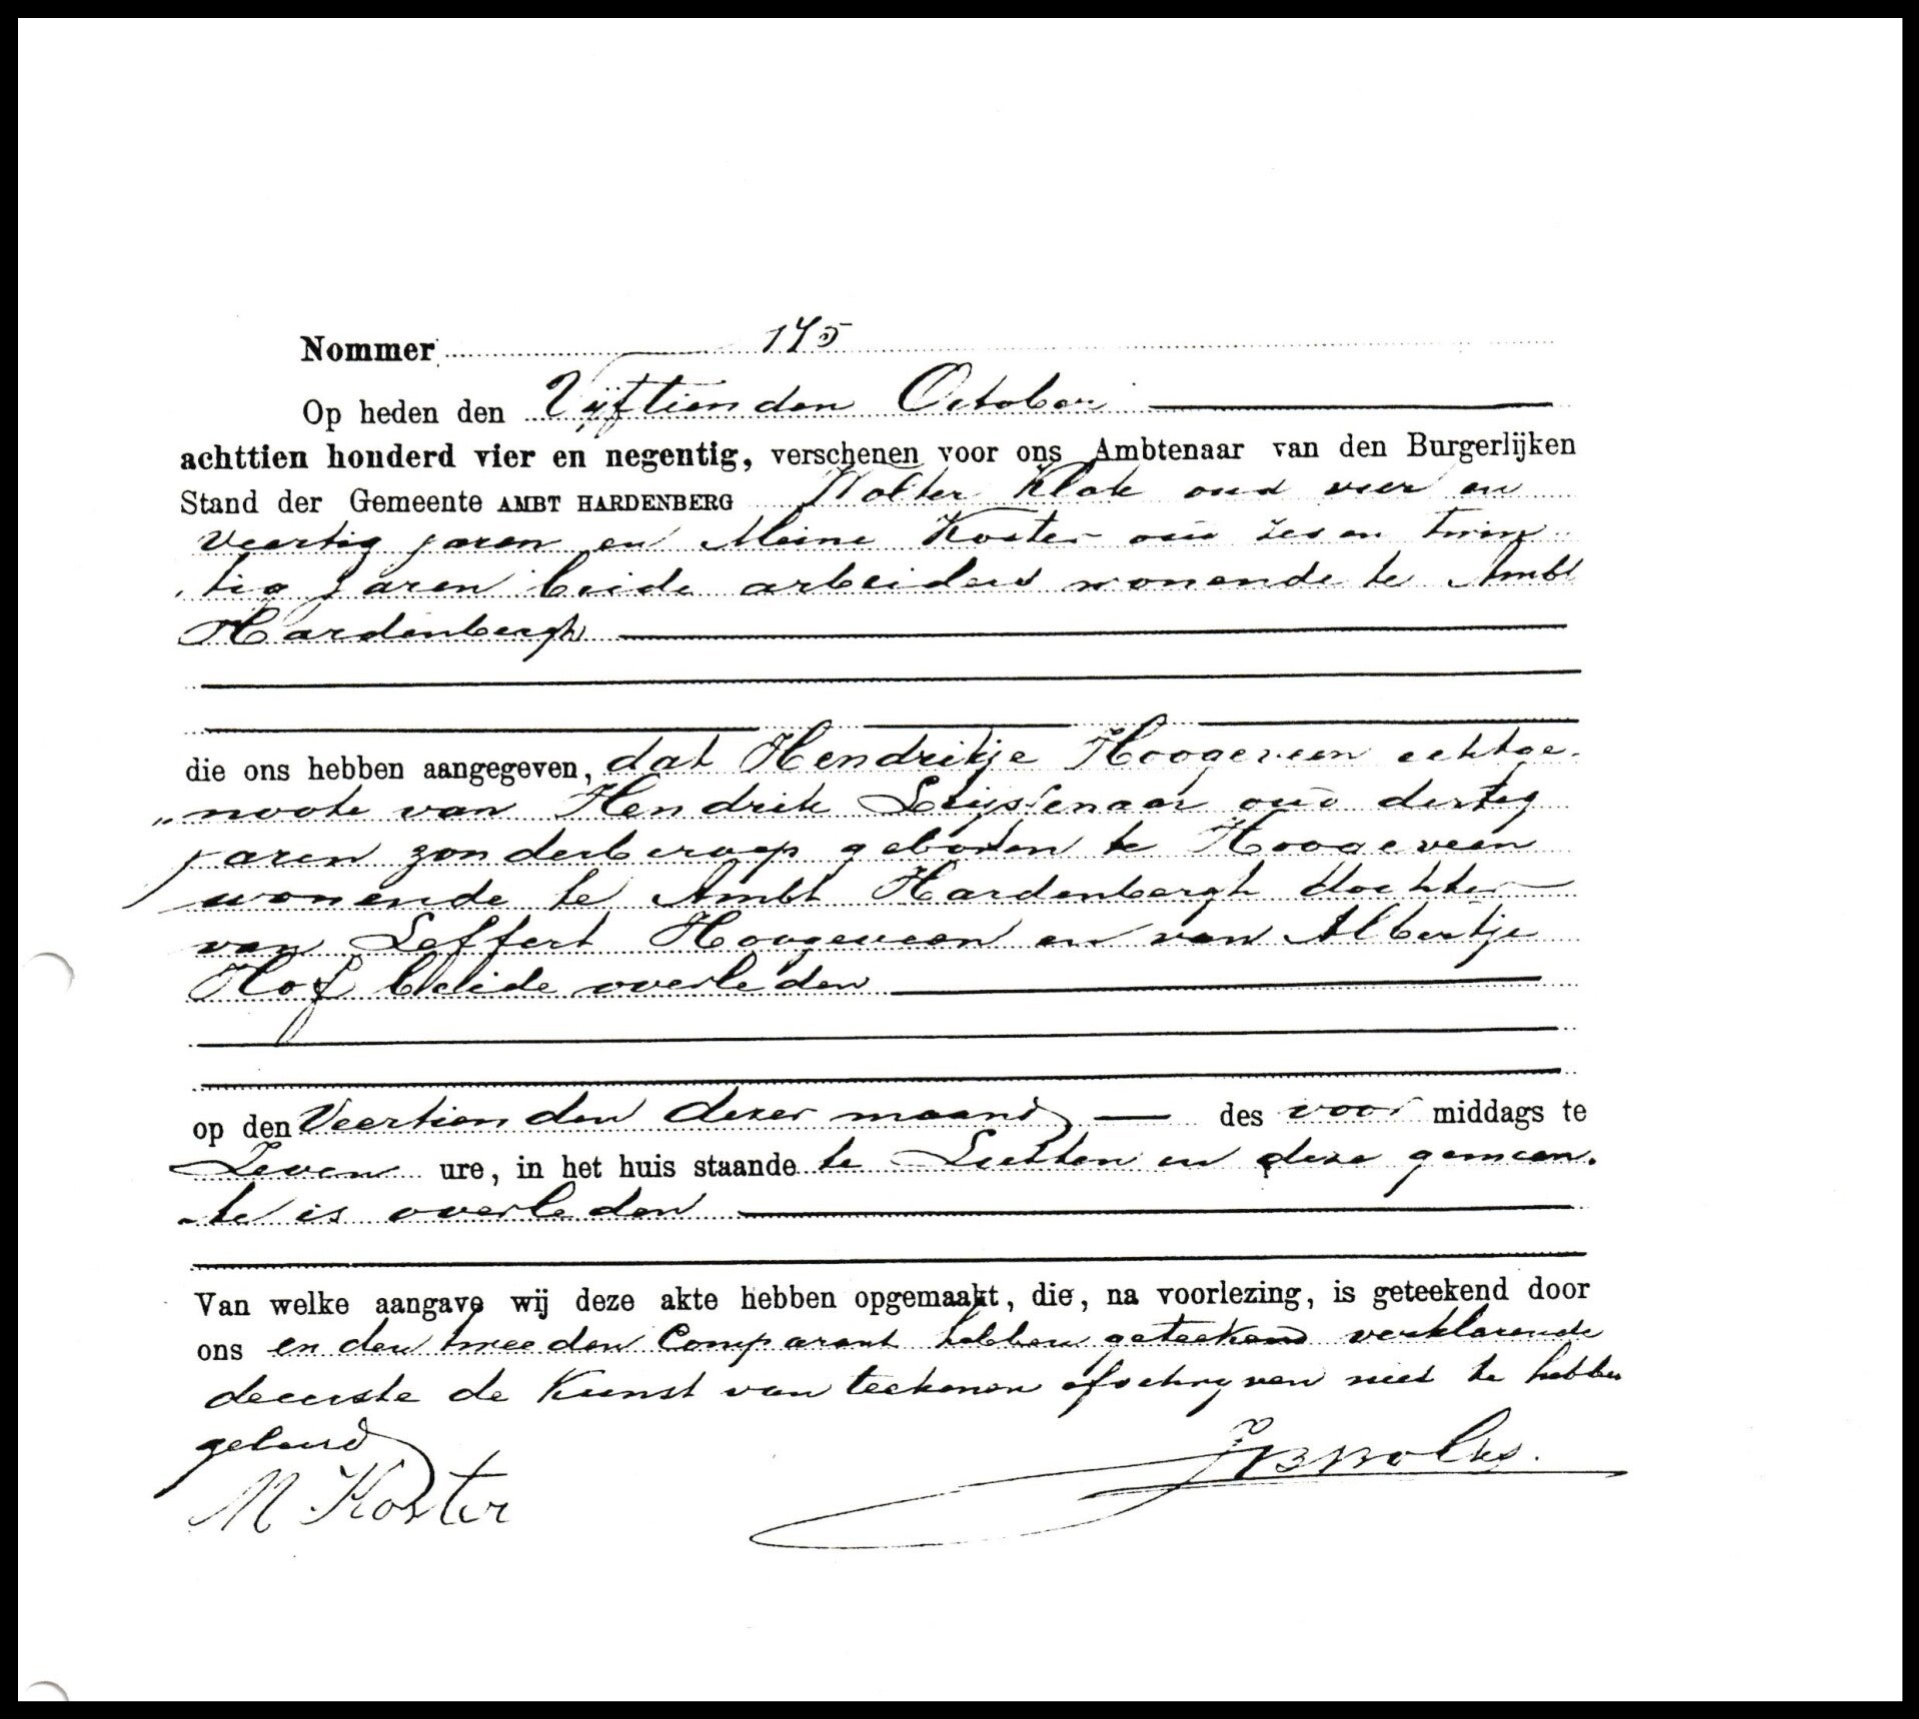 Nommer 175
Op heden den Vijftienden October
achttien honderd vier en negentig, verschenen voor ons Ambtenaar van den Burgerlijken
Stand der Gemeente AMBT HARDENBERG Wolter Klok oud vier en
veertig jaren en Meine Koster oud zes en twin
tig jaren beide arbeiders wonende te Ambt
Hardenbergh
die ons hebben aangegeven, dat Hendrikje Hoogeveen echtge-
"noote van Hendrik oud dertig
jaren zonder beroep geboren te Hoogeveen
wonende te Ambt Hardenbergh dochter
van Leffert Hoogeveen en van Albertje
Hof beide overleden
op den Veertienden dezer maand des voor middags te
Zeven ure, in het huis staande te Lutten in deze gemeen-
-te is overleden
Van welke aangave wij deze akte hebben opgemaakt, die, na voorlezing, is geteekend door
ons en den tweeden Comparant hebben geteekend verklarende
de eerste de Kunst van teekenen of schryven niet te hebben
geleerd
M Koster